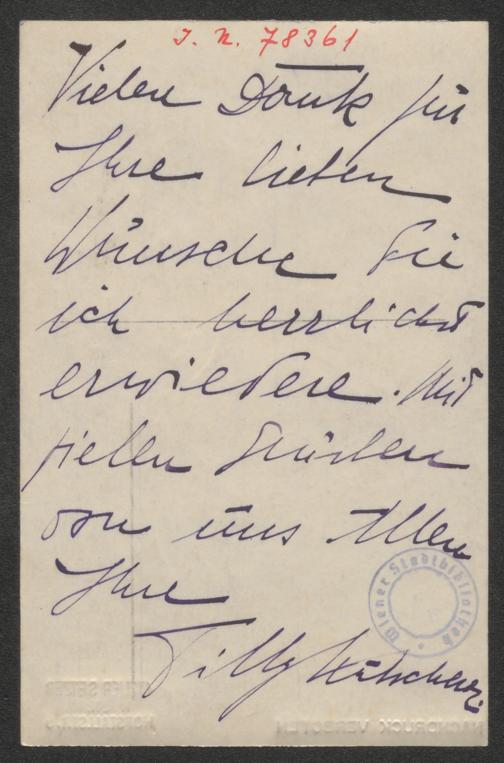 I. N. 78361
Vielen Dank für
Ihre lieben
Wünsche die
ich herzlichst
erwiedere. Mit
vielen Grüßen
von uns Allen
Ihre
Tilly
Wiener Stadtbibliothek
NACHDRUCK VERBOTEN